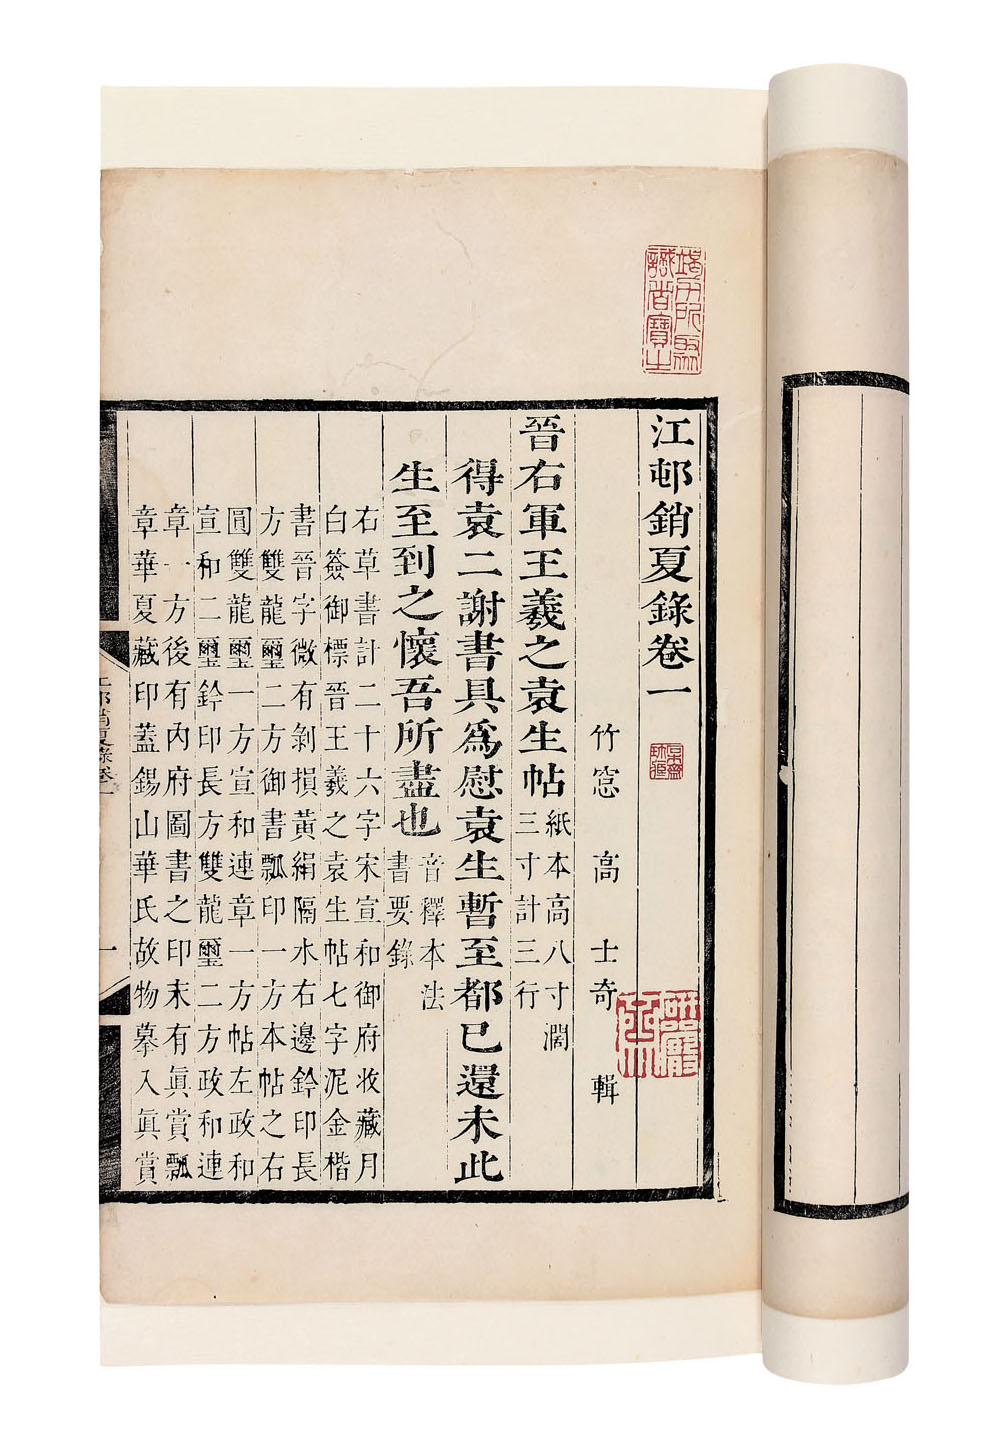 江邨銷夏錄卷一
竹窓 高士奇 輯
晉右軍王羲之袁生帖紙本高八寸濶
三寸計三行
得袁二謝書具爲慰袁生暫至都已還未此
生至到之懷吾所盡也音釋本法
書要錄
右草書計二十六字宋宣和御府收藏月
白簽御標晉王羲之袁生帖七字泥金楷
書晉字微有剝損黃絹隔水右邊鈐印長
方雙龍璽二方御書瓢印一方本帖之右
圓雙龍璽一方宣和連章一方帖左政和
宣和二璽鈐印長方雙龍璽二方政和連
章一方後有內府圖書之印末有眞賞瓢
章華夏藏印蓋錫山華氏故物摹入眞賞
江邨銷夏錄卷一
一